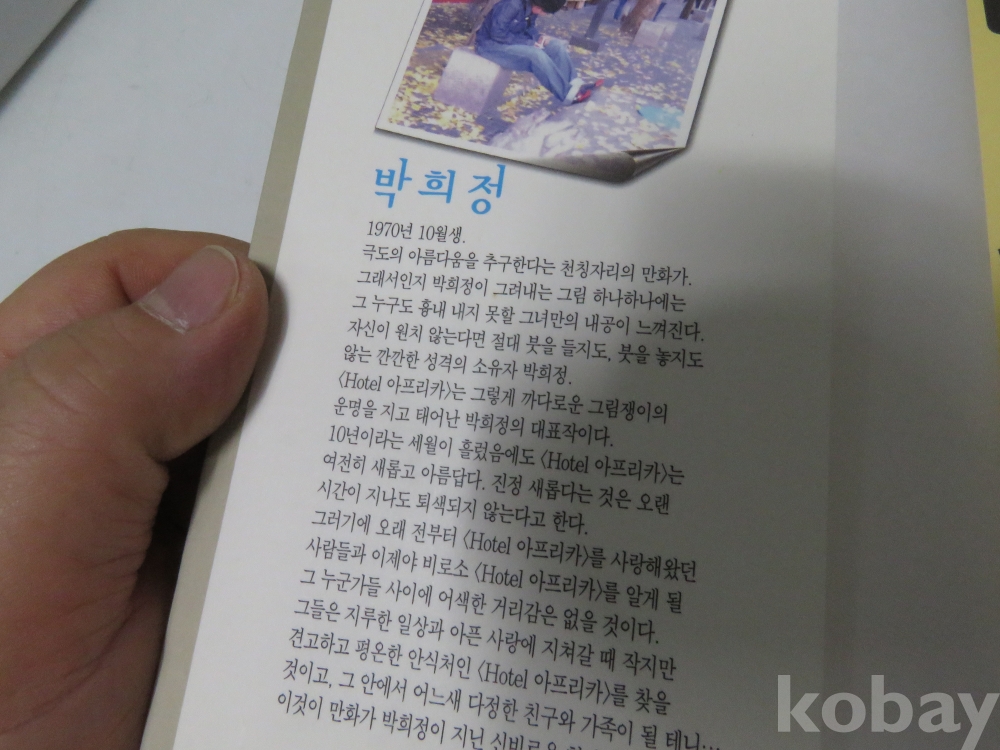 박희정
1970년 10월생.
극도의 아름다움을 추구한다는 천칭자리의 만화가.
그래서인지 박희정이 그려내는 그림 하나하나에는
그 누구도 흉내 내지 못할 그녀만의 내공이 느껴진다.
자신이 원치 않는다면 절대 붓을 들지도, 붓을 놓지도
않는 깐깐한 성격의 소유자 박희정.
〈Hotel 아프리카〉는 그렇게 까다로운 그림쟁이의
운명을 지고 태어난 박희정의 대표작이다.
10년이라는 세월이 흘렀음에도 〈Hotel 아프리카〉는
여전히 새롭고 아름답다. 진정 새롭다는 것은 오랜
시간이 지나도 퇴색되지 않는다고 한다.
그러기에 오래 전부터 〈Hotel 아프리카〉를 사랑해왔던
사람들과 이제야 비로소 〈Hotel 아프리카〉를 알게 될
그 누군가들 사이에 어색한 거리감은 없을 것이다.
그들은 지루한 일상과 아픈 사랑에 지쳐갈 때 작지만
견고하고 평온한 안식처인 〈Hotel 아프리카〉를 찾을
것이고, 그 안에서 어느새 다정한 친구와 가족이 될 테니…
이것이 만화가 박희정이 지닌 신비로운
kobay